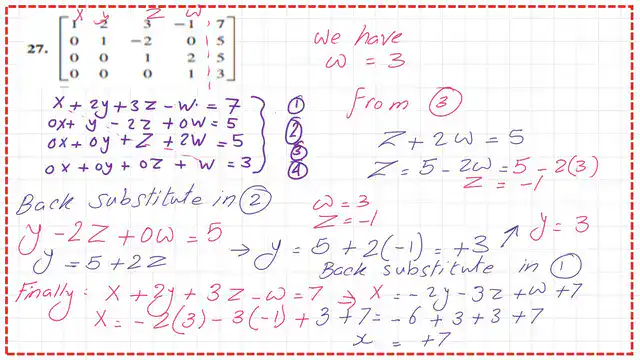 X y Z W
27. [ 1 2 3 −1 7
0 1 −2 0 5
0 0 1 2 5
0 0 0 1 3 ]
X + 2y + 3Z − W = 7 ①
0X + y − 2Z + 0W = 5 ②
0X + 0y + Z + 2W = 5 ③
0X + 0y + 0Z + W = 3 ④
We have
W = 3
From ③
Z + 2W = 5
Z = 5 − 2W = 5 − 2(3)
Z = −1
Back substitute in ②
W = 3
Z = −1
y − 2Z + 0W = 5
y = 5 + 2Z
→ y = 5 + 2(−1) = +3 ↗ y = 3
Back substitute in ①
Finally: X + 2y + 3Z − W = 7 ⇒ X = −2y − 3Z + W + 7
X = −2(3) − 3(−1) + 3 + 7 = −6 + 3 + 3 + 7
x = +7